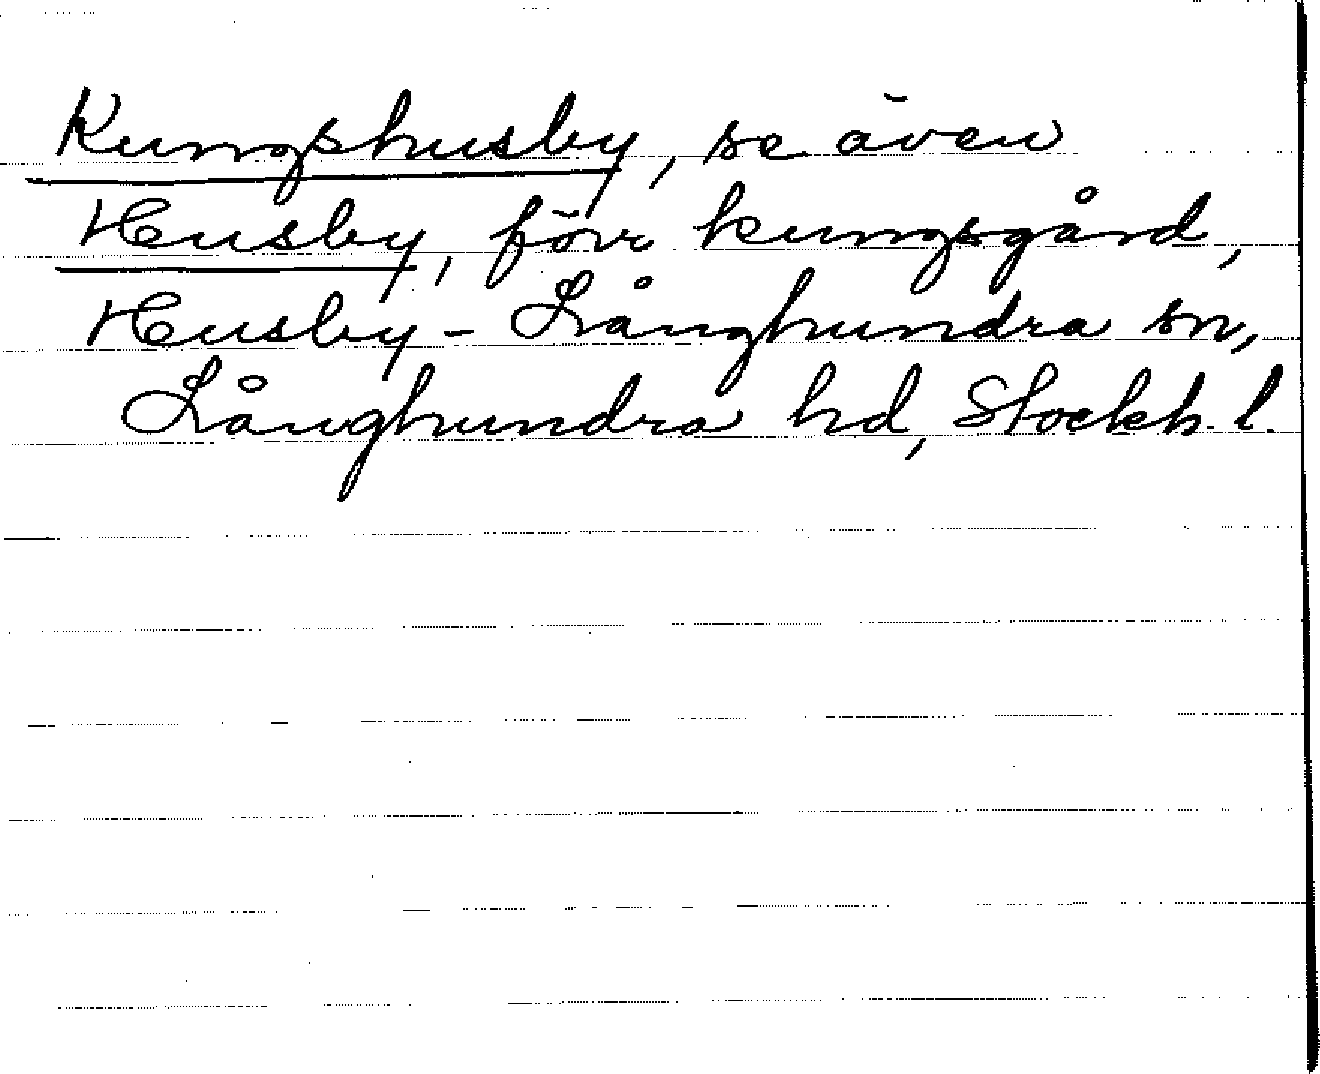 Kungshusby, se även
Husby, förr kungsgård,
Husby-Långhundra sn,
Långhundra hd, Stockh. l.